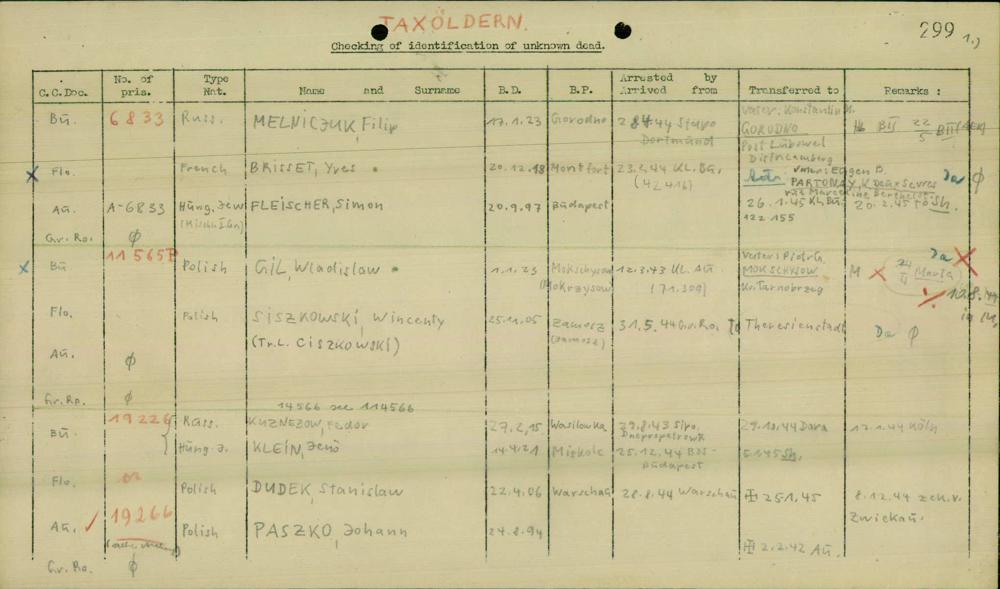 TAXÖLDERN.
299 1.)
Checking of identification of unknown dead.
C.C.Doc. No. of pris. Type Nat. Name and Surname B.D. B.P. Arrested by Arrived from Transferred to Remarks :
Vater: Konstantin M.
Bü. 6833 Russ. MELNICZUK Filip 17.1.23 Gorodno 2 8 4 44 Stapo Dortmund GORODNO BII 22/5 BII
Post Lubowel
Distr.
x Flo. French BRISSET, Yves 20.12.18 Montfort 23.2.44 KL. Bu. (42416) Vater: Eugen B. Da φ
PARTONAY, K. Deux Sevres
rue Marcelline Berthelot
Aü. A-6833 Hüng. Jew FLEISCHER, Simon 20.9.97 Büdapest 26.1.45 KL Bü. 20.2.45 to Sh.
122 155
Gr. Ro. φ
x Bü 11565P Polish GIL, Wladislaw 1.1.23 Mokschysow (Mokrzysow) 12.3.43 KL. Aü. (71309) Vater: Piotr G. MOKSCHYSOW Kr. Tarnobrzeg M Da X
10.8.44
Flo. Polish SISZKOWSKI, Wincenty 25.11.05 Zamosz (Zamosz) 31.5.44 Gr. Ro. To Theresienstadt Da φ
(Tr.L. CISZKOWSKI)
Aü. φ
Gr. Ro. φ
14566 see 114566
Bü. 19226 Russ. KUZNEZOW, Fedor 27.2.15 Wasilowka 29.8.43 Sipo. Dnepropetrowk 29.10.44 Dora 17.1.44 Köln
Hüng. J. KLEIN, Jenö 14.4.21 Mizkolc 25.12.44 BdS - Büdapest 5145 Sh.
Flo. or Polish DUDEK, Stanislaw 22.4.06 Warschaü 28.8.44 Warschaü 25.1.45 8.12.44 zck. v. Zwickaü.
Aü. 19266 Polish PASZKO, Johann 24.8.94 2.2.42 Aü.
Gr. Ro. φ